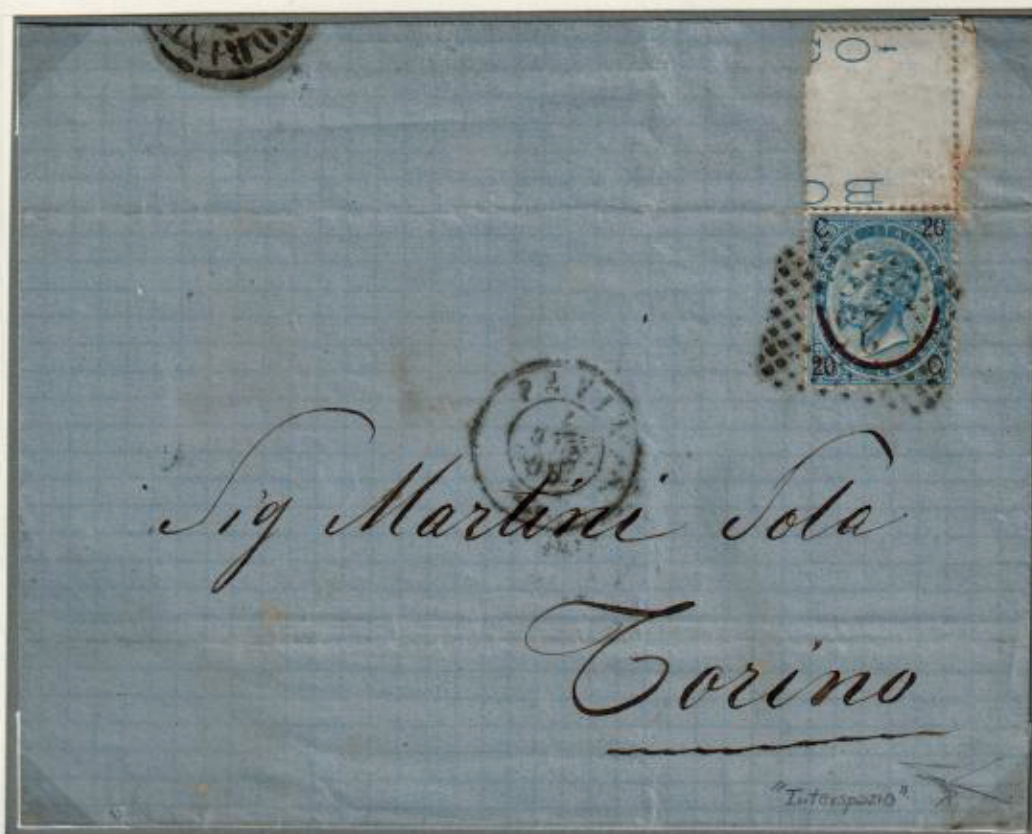 20
20
C
PAVIA
Sig Martini Sola
Torino
"Interspazio"